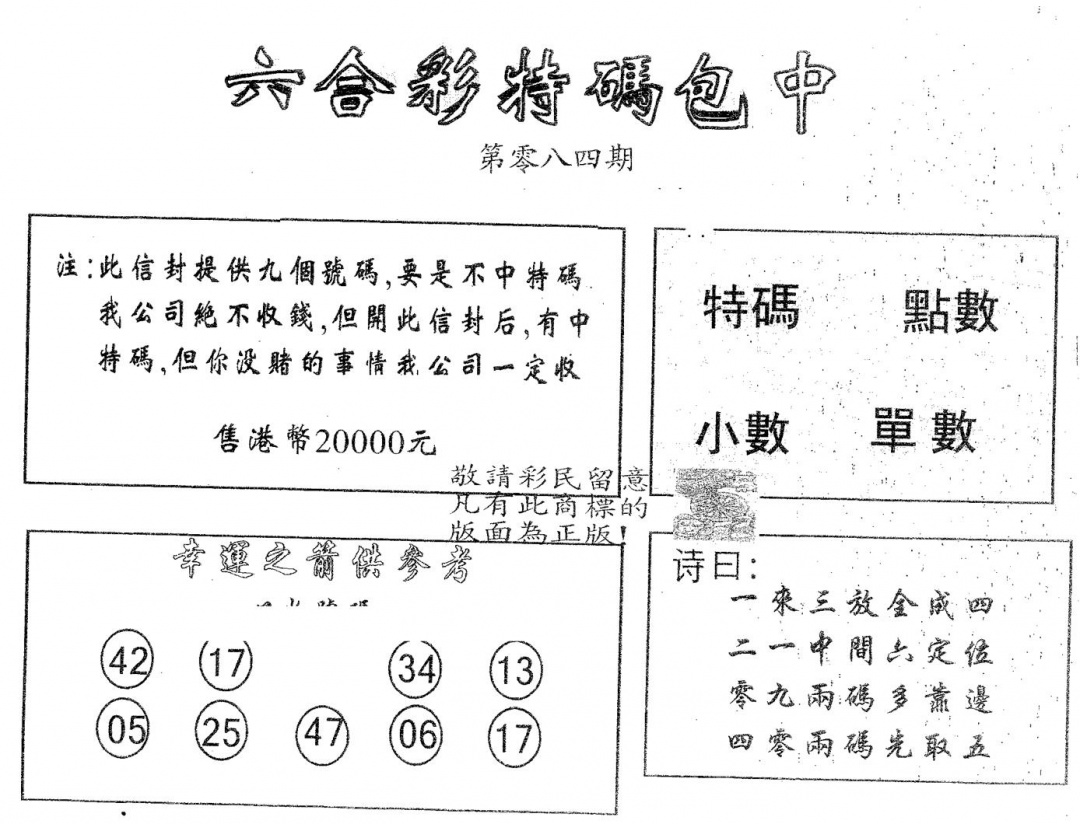 六合彩特碼包中
第零八四期
注:此信封提供九個號碼,要是不中特碼
我公司絶不收錢,但開此信封后,有中
特碼,但你没賭的事情我公司一定收
售港幣20000元
特碼 點數
小數 單數
敬請彩民留意
凡有此商標的
版面為正版!
幸運之箭供參考
42 17 34 13
05 25 47 06 17
诗曰:
一來三放全成四
二一中間六定位
零九兩碼多靠邊
四零兩碼先取五